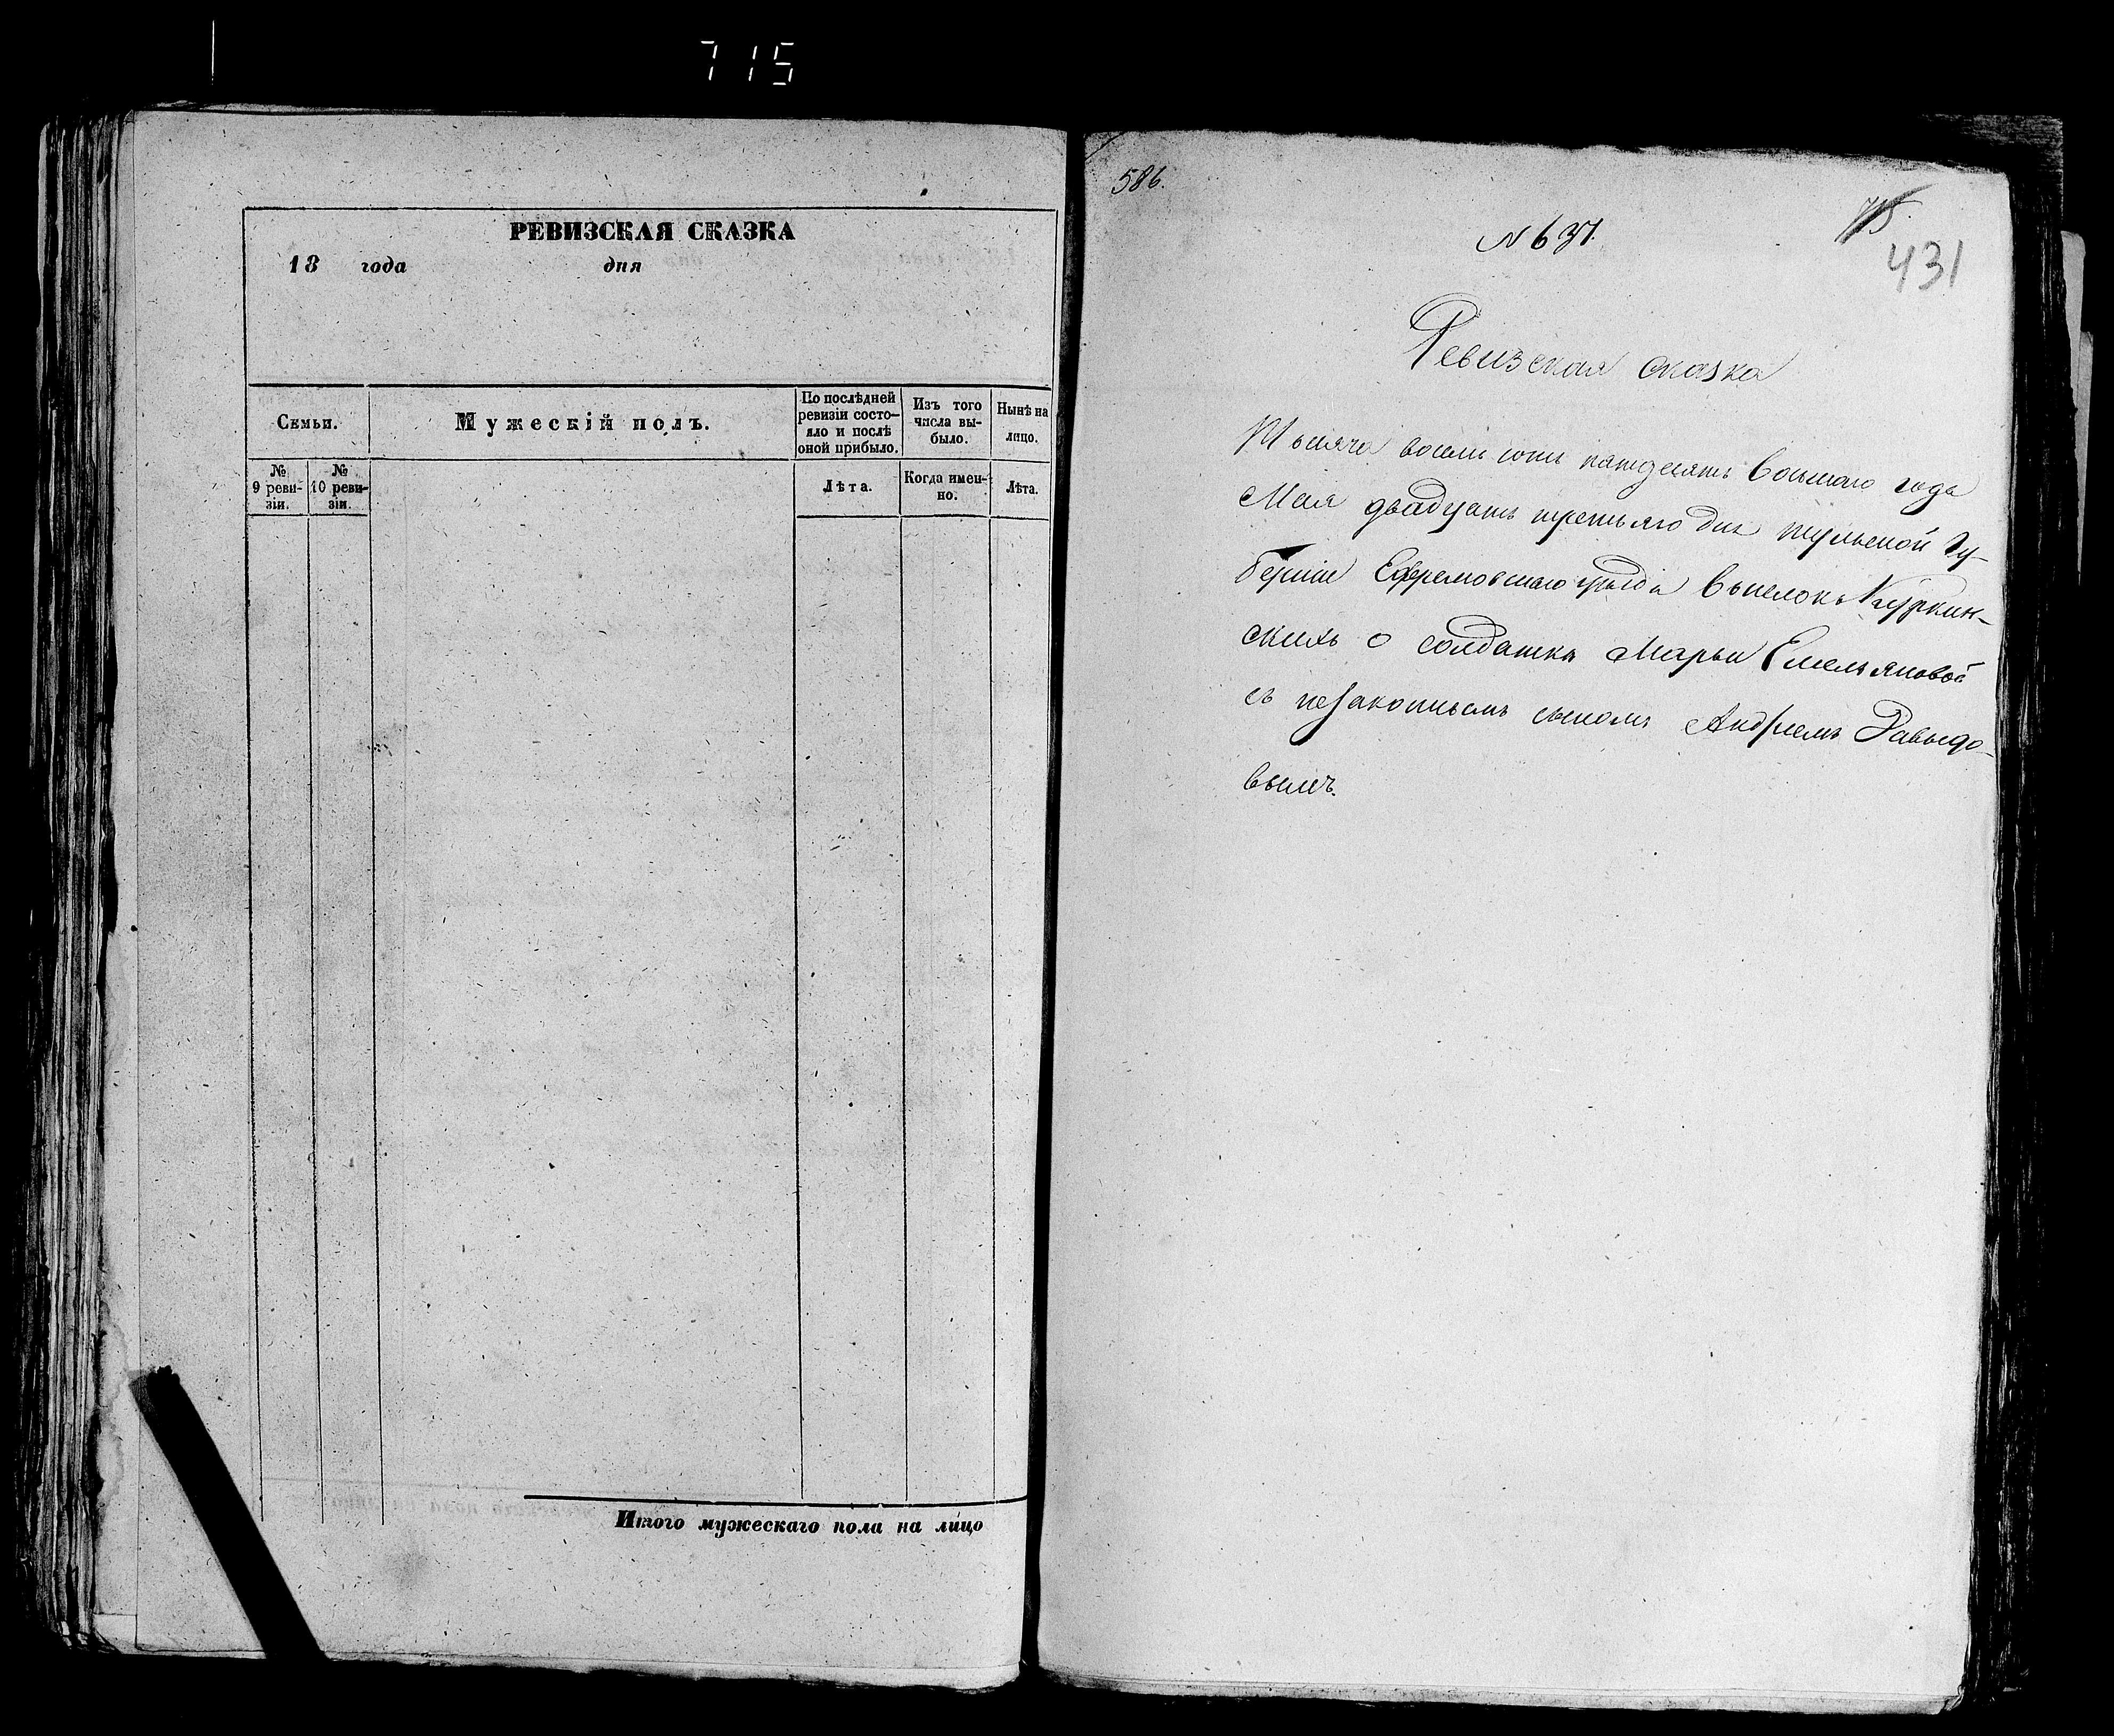 715
РЕВИЗСКАЯ СКАЗКА
18 года дня
Семьи.
Мужескій полъ.
По послѣдней ревизіи состо-
яло и послѣ
оной прибыло.
Изъ того
числа вы-
было.
Нынѣ на
лицо.
№
9 реви-
зіи.
№
10 реви-
зіи.
Лѣта.
Когда имен-
но.
Лѣта.
Итого мужескаго пола на лицо
586.
715.
431
Ревизская сказка
Тысяча восемь сотъ пятдесятъ восьмаго года
Мая двадцать третьяго дня тульской Гу-
берніи Ефремовскаго уѣзда выселокъ Куркин-
скихъ о солдаткѣ Марьи Емельяновой
съ незаконнымъ сыномъ Андреемъ Давыдо-
вымъ.